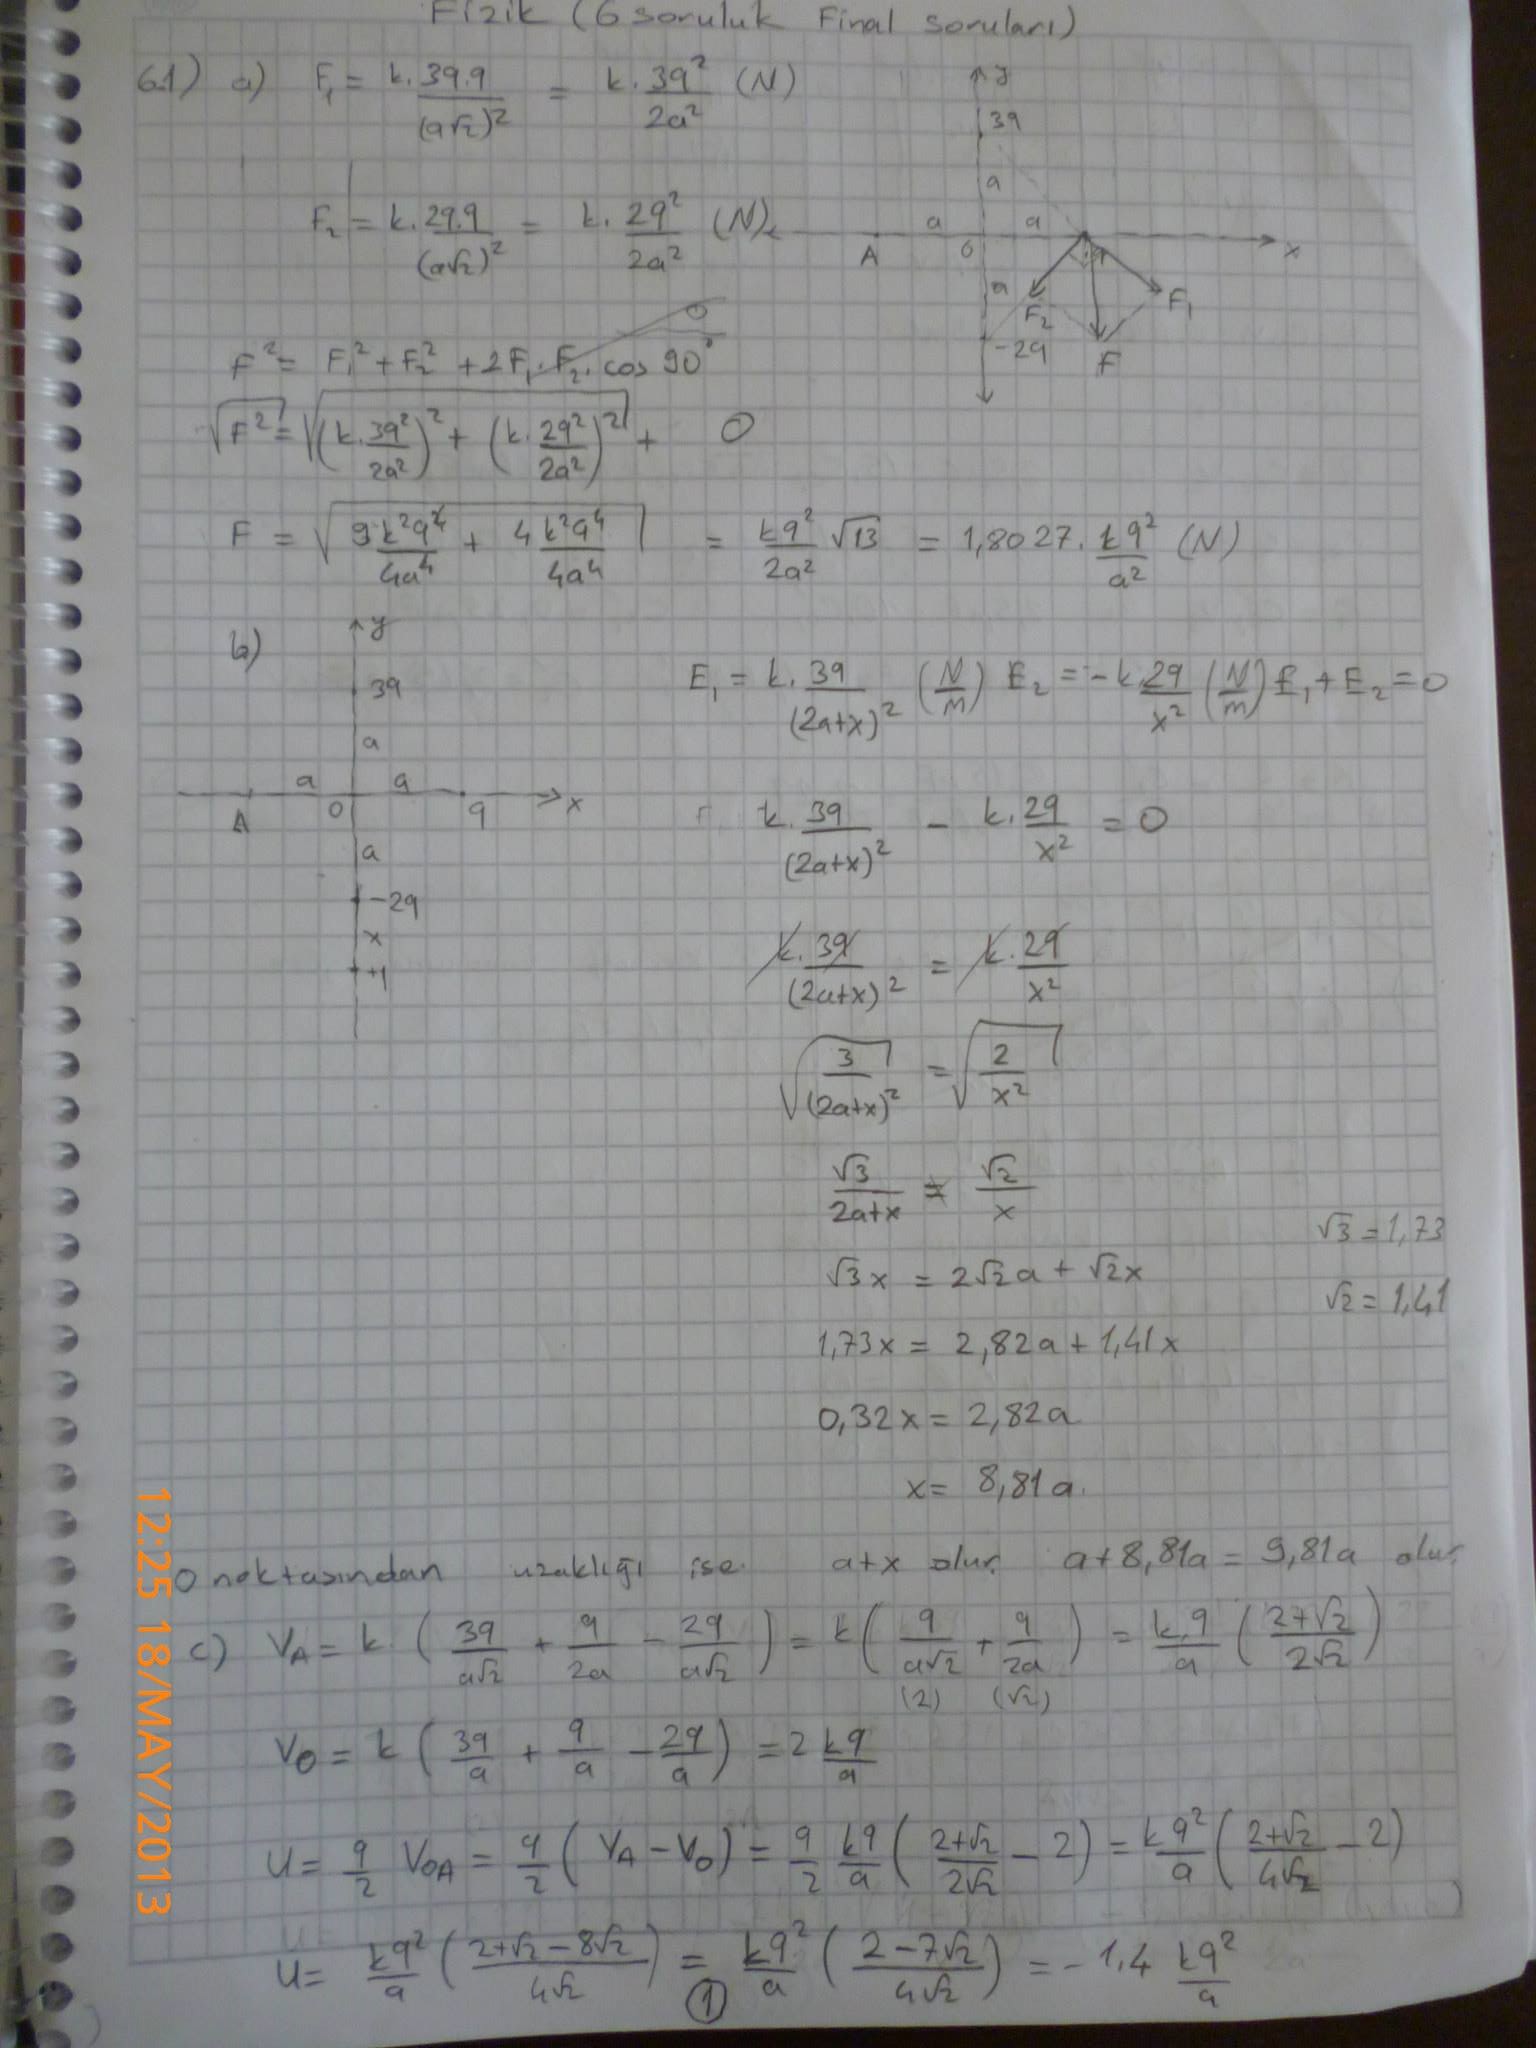 Fizik (6 soruluk Final soruları)
6.1) a) F₁ = k.3q.q/(a√2)² = k.3q²/2a² (N)
y
3q
a
F₂ = k.2q.q/(a√2)² = k.2q²/2a² (N)
A a O a q x
a
F₂ F₁
-2q
F
F² = F₁² + F₂² + 2F₁.F₂.cos 90° 0
√F² = √((k.3q²/2a²)² + (k.2q²/2a²)²) + 0
F = √(9k²q⁴/4a⁴ + 4k²q⁴/4a⁴) = kq²/2a² √13 = 1,8027.kq²/a² (N)
b)
y
3q
a
A a O a q x
a
-2q
x
+1
E₁ = k.3q/(2a+x)² (N/m) E₂ = -k.2q/x² (N/m) E₁+E₂ = 0
k.3q/(2a+x)² - k.2q/x² = 0
k.3q/(2a+x)² = k.2q/x²
√(3/(2a+x)²) = √(2/x²)
√3/(2a+x) = √2/x
√3 = 1,73
√3x = 2√2a + √2x
√2 = 1,41
1,73x = 2,82a + 1,41x
0,32x = 2,82a
x = 8,81a.
O noktasından uzaklığı ise a+x olur. a+8,81a = 9,81a olur.
c) V_A = k.(3q/a√2 + q/2a - 2q/a√2) = k(q/a√2 + q/2a) = k.q/a ((2+√2)/2√2)
(2) (√2)
V_O = k (3q/a + q/a - 2q/a) = 2 kq/a
U = q/2 V_OA = q/2 (V_A - V_O) = q/2 kq/a ((2+√2)/2√2 - 2) = kq²/a ((2+√2)/4√2 - 2)
U = kq²/a ((2+√2-8√2)/4√2) = kq²/a ((2-7√2)/4√2) = -1,4 kq²/a
1
12:25 18/MAY/2013